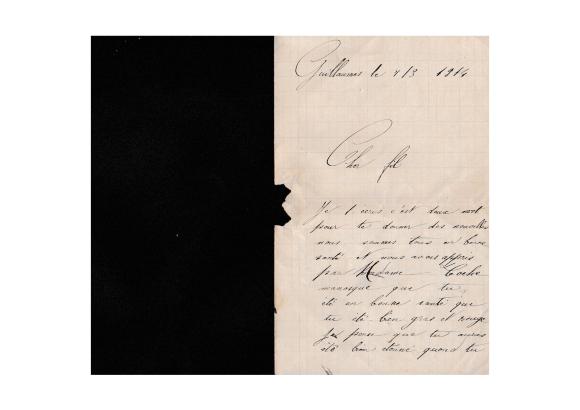 Guillaumes le 4/3 1914
Cher fil
Je t. ecris c'est deux mot
pour te donner des nouvelles
nous sommes tous en bonne
santé et nous avons appris
par Madame
que tu
été en bonne santé que
tu été bien gras et rouge
pense que tu auras
été bien étonné quand tu